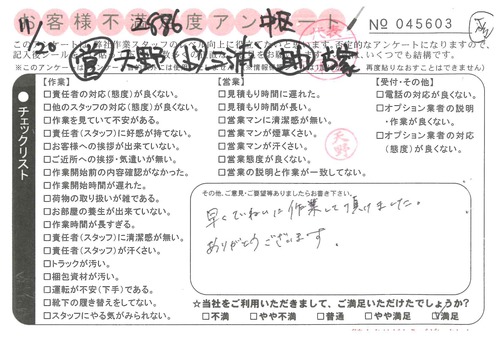 お客様不満足度アンケート
№ 045603
11/20
2886
中区
営 天野 三浦 助 塚
【作業】
□責任者の対応(態度)が良くない。
□他のスタッフの対応(態度)が良くない。
□作業を見ていて不安がある。
□責任者(スタッフ)に好感が持てない。
□お客様への挨拶が出来ていない。
□ご近所への挨拶・気遣いが無い。
□作業開始前の内容確認がなかった。
□作業開始時間が遅れた。
□荷物の取り扱いが雑である。
□お部屋の養生が出来ていない。
□作業時間が長すぎる。
□責任者(スタッフ)に清潔感が無い。
□責任者(スタッフ)が汗くさい。
□トラックが汚い。
□梱包資材が汚い。
□運転が不安(下手)である。
□靴下の履き替えをしてない。
□スタッフにやる気がみられない。
【営業】
□見積もり時間に遅れた。
□見積もり時間が長い。
□営業マンに清潔感が無い。
□営業マンが煙草くさい。
□営業マンが汗くさい。
□営業態度が良くない。
□営業の説明と作業が一致してない。
【受付・その他】
□電話の対応が良くない。
□オプション業者の説明
・作業が良くない。
□オプション業者の対応
(態度)が良くない。
天野
チェックリスト
その他、ご意見・ご要望等ありましたらお書き下さい。
早くていねいに作業して頂けました。
ありがとうございます。
☆当社をご利用いただきまして、ご満足いただけたでしょうか?
□不満 □やや不満 □普通 □やや満足 ☑満足